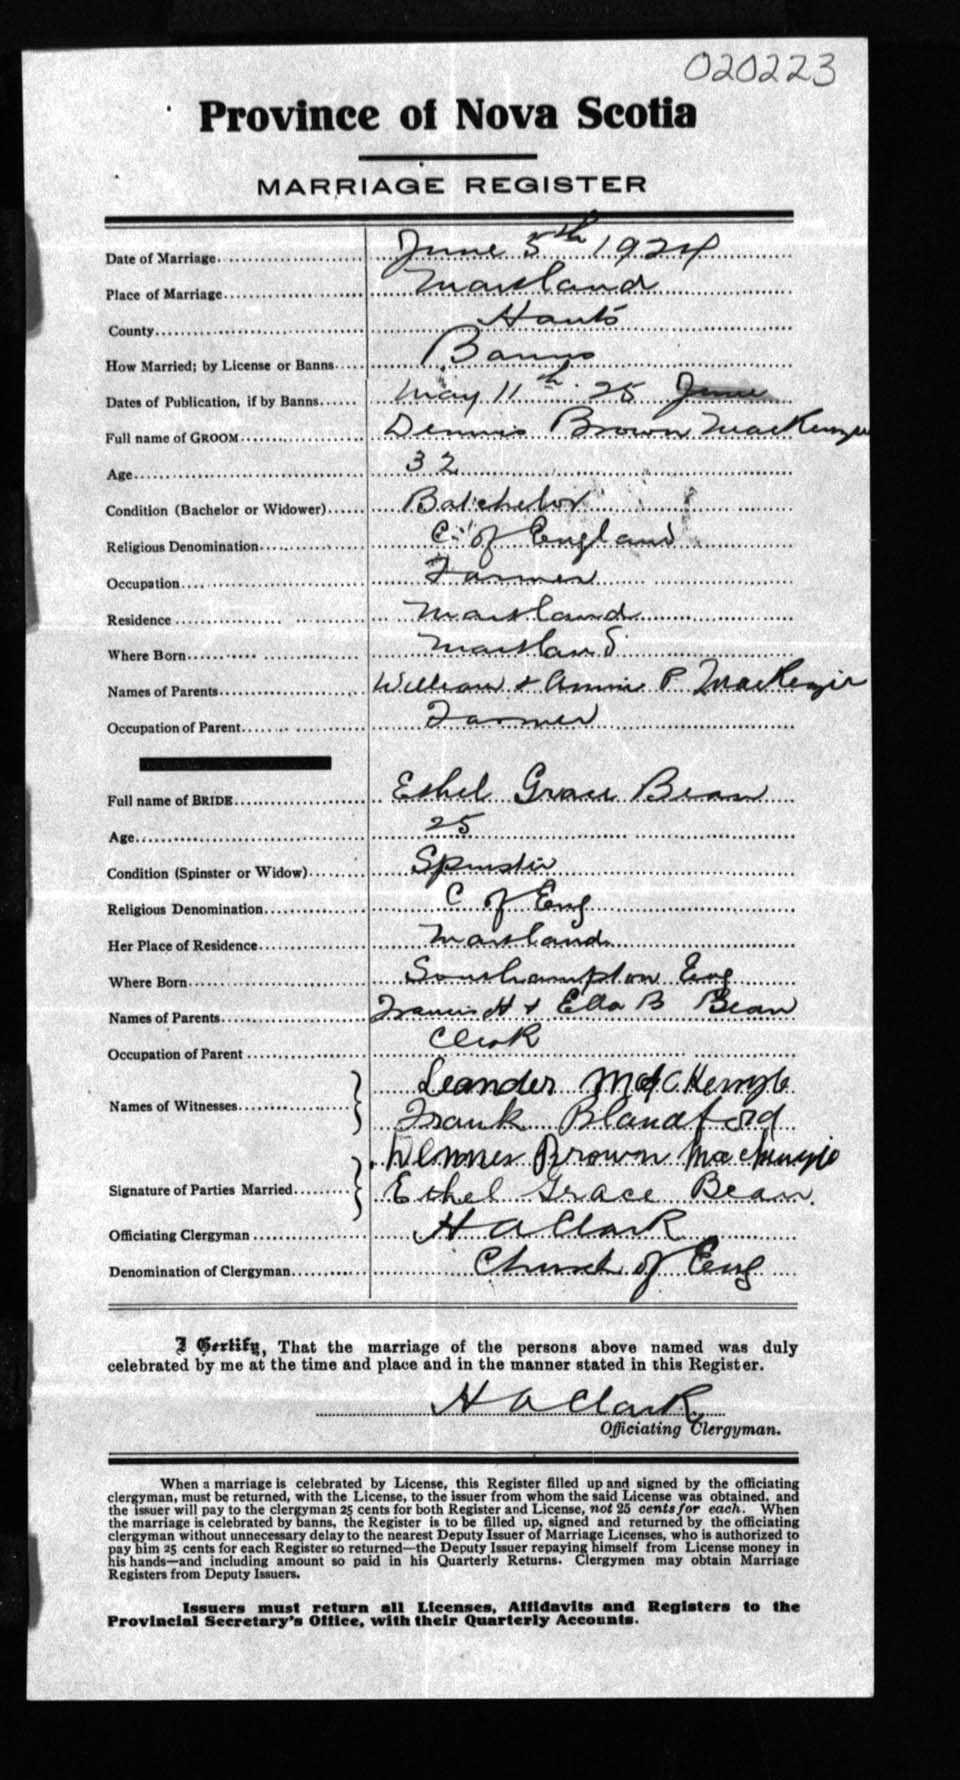 020223
Province of Nova Scotia
MARRIAGE REGISTER
Date of Marriage June 5th 1924
Place of Marriage Maitland
County Hants
How Married; by License or Banns Banns
Dates of Publication, if by Banns May 11th 25 June
Full name of GROOM Dennis Brown MacKenzie
Age 32
Condition (Bachelor or Widower) Batchelor
Religious Denomination C. of England
Occupation Farmer
Residence Maitland
Where Born Maitland
Names of Parents William & Annie P. MacKenzie
Occupation of Parent Farmer
Full name of BRIDE Ethel Grace Bean
Age 25
Condition (Spinster or Widow) Spinster
Religious Denomination C of Eng
Her Place of Residence Maitland
Where Born Southampton Eng
Names of Parents Francis H & Ella B Bean
Occupation of Parent Clerk
Names of Witnesses Leander MacKenzie
Frank Blandford
Signature of Parties Married Dennis Brown MacKenzie
Ethel Grace Bean.
Officiating Clergyman H A Clark
Denomination of Clergyman Church of Eng
I Certify, That the marriage of the persons above named was duly
celebrated by me at the time and place and in the manner stated in this Register.
H A Clark
Officiating Clergyman.
When a marriage is celebrated by License, this Register filled up and signed by the officiating
clergyman, must be returned, with the License, to the issuer from whom the said License was obtained, and
the issuer will pay to the clergyman 25 cents for both Register and License, not 25 cents for each. When
the marriage is celebrated by banns, the Register is to be filled up, signed and returned by the officiating
clergyman without unnecessary delay to the nearest Deputy Issuer of Marriage Licenses, who is authorized to
pay him 25 cents for each Register so returned—the Deputy Issuer repaying himself from License money in
his hands—and including amount so paid in his Quarterly Returns. Clergymen may obtain Marriage
Registers from Deputy Issuers.
Issuers must return all Licenses, Affidavits and Registers to the
Provincial Secretary's Office, with their Quarterly Accounts.